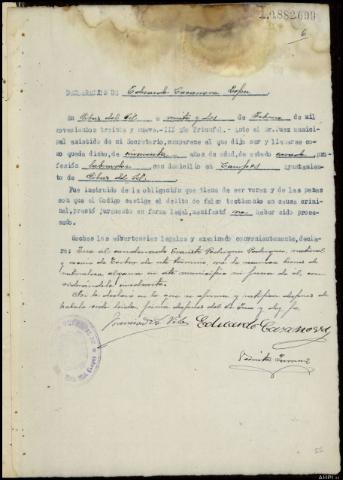 1A882699
6
DECLARACION DE Eduardo Casanova López
En Ribas del Sil a veinte y dos de Febrero de mil
novecientos treinta y nueve.-III Año Triunfal.- Ante el Sr. Juez municipal
asistido de mi Secretario, comparece el que dijo ser y llamarse como
queda dicho, de cincuenta años de edad, de estado casado profesión
labrador con domicilio en ayuntamiento
de Ribas del Sil.
Fue instruido de la obligación que tiene de ser veraz y de las penas
con que el Código castiga el delito de falso testimonio en causa criminal,
prestó juramento en forma legal, manifestó no haber sido procesado.
Hechas las advertencias legales y examinado convenientemente, declara:
Que el Evaristo Rodriguez Rodriguez, natural
y vecino de de este término no le conoce bienes de
naturaleza alguna en este municipio ni fuera de él, con-
siderándolo insolvente.
Así lo declara en lo que se afirma y ratifica después de
haberlo leido, firma después del Sr. Juez y doy fe
Eduardo Casanova
AHPL